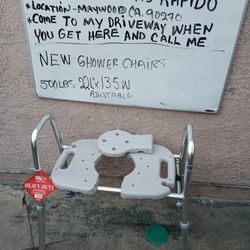 RAPIDO
*LOCATION- MAYWOOD CA. 90270
*COME TO MY DRIVEWAY WHEN
YOU GET HERE AND CALL ME
NEW SHOWER CHAIRS
500LBS 22L X 13.5W
ADJUSTABLE
HEAVY-DUTY